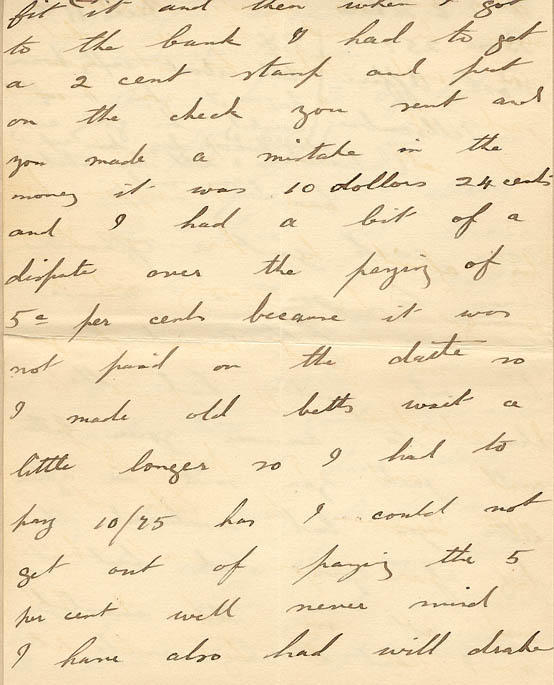 fit it and then when I got
to the bank I had to get
a 2 cent stamp and put
on the check you sent and
you made a mistake in the
money it was 10 dollors 24 cents
and I had a bit of a
dispute over the paying of
5 per cents because it was
not paid on the daste so
I made old betts wait a
little longer so I had to
pay 10/75 has I could not
get out of paying the 5
per cent well never mind
I have also had will drake